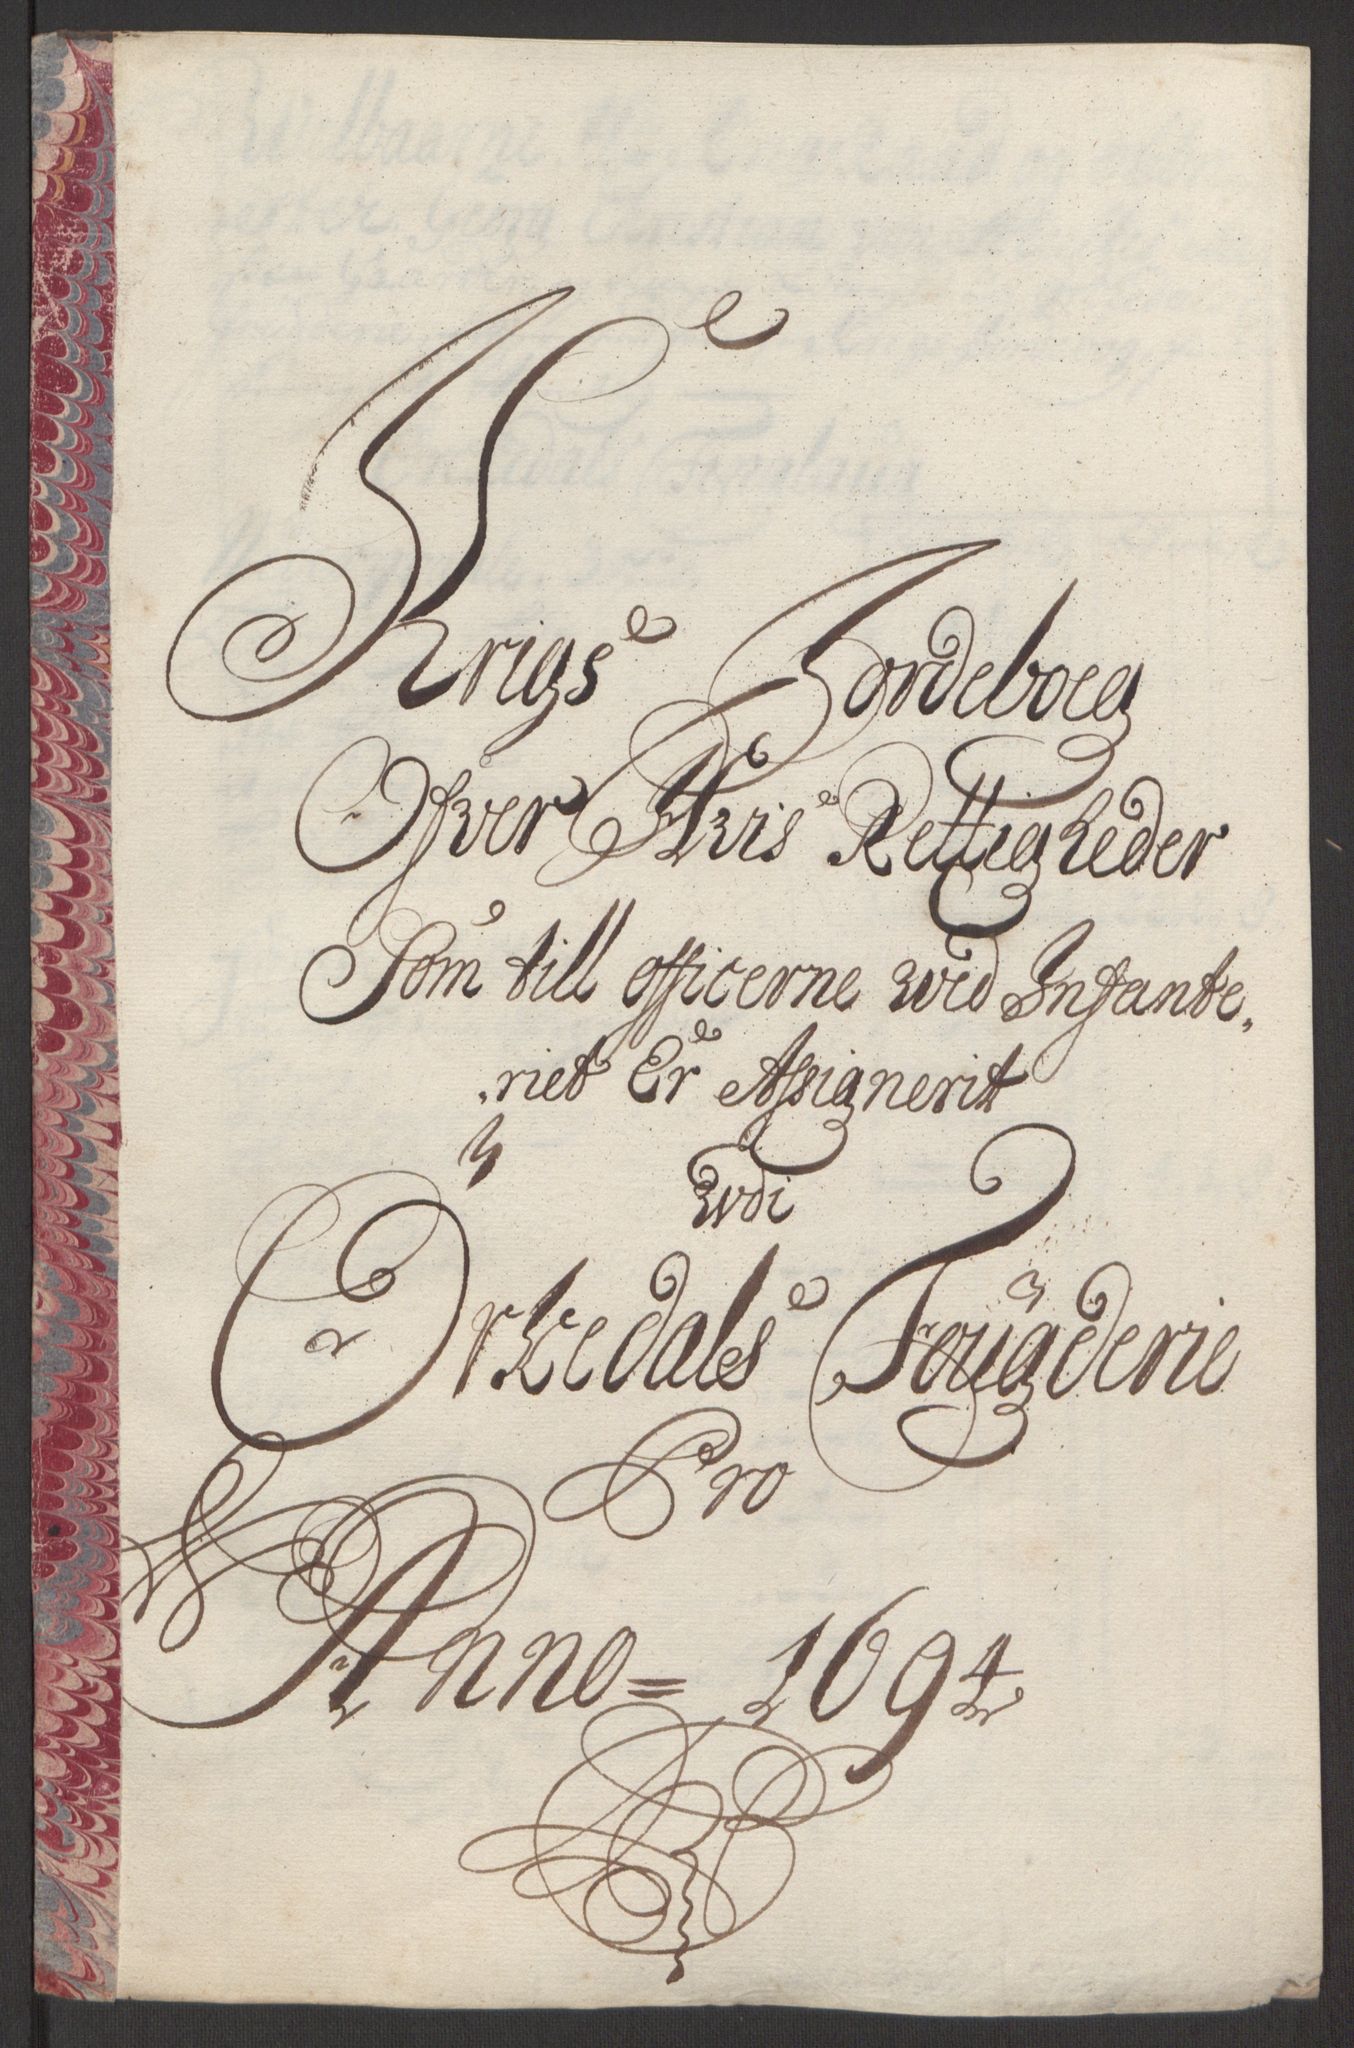 Krigs Jordeboeg
Ofver Hvis Rettigheder
Som till officerne wed Infante,
,riet Er Assignerit
wdi
Orkedals Fougderie
Pro
Anno = 1694